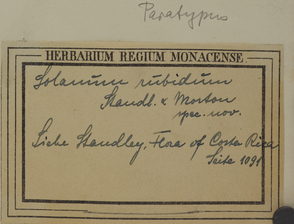 Paratypus
HERBARIUM REGIUM MONACENSE
Solanum rubidum
Standl. & Morton
spec. nov.
Siehe Standley, Flora of Costa Rica
Seite 1091